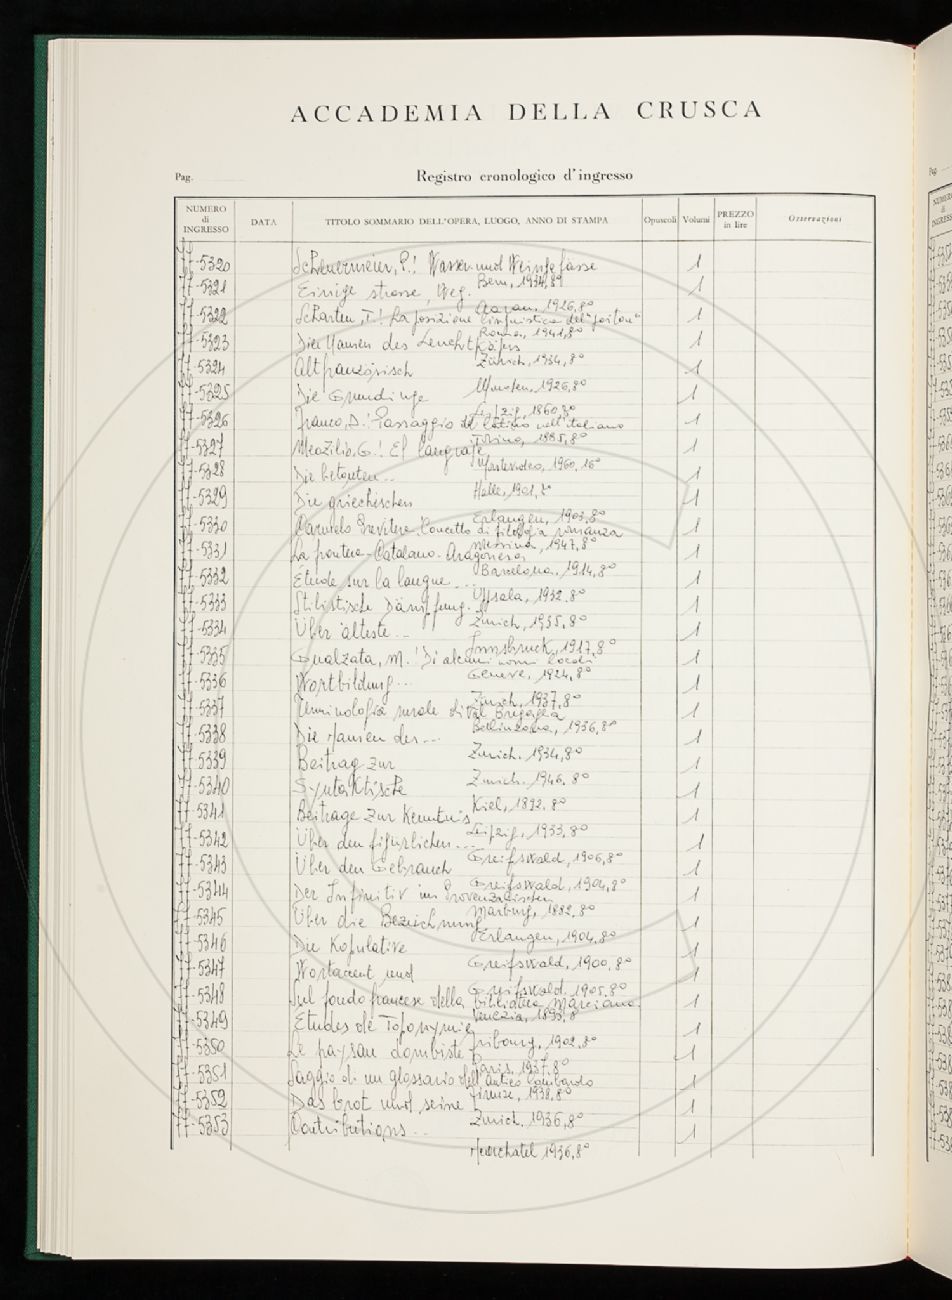 ACCADEMIA DELLA CRUSCA
Pag.
Registro cronologico d'ingresso
NUMERO di INGRESSO DATA TITOLO SOMMARIO DELL'OPERA, LUOGO, ANNO DI STAMPA Opuscoli Volumi PREZZO in lire Osservazioni
77-5320 Scheuermeier, P.! Wasser- und Weingefässe 1
Bern, 1934, 8°
77-5321 Einige strasse, Weg. 1
Aarau, 1926, 8°
77-5322 Scharten, T.! La posizione linguistica del "poitou" 1
Roma, 1941, 8°
77-5323 Die Namen des Leuchtkäfers 1
Zürich, 1934, 8°
77-5324 Altfranzösisch 1
1926, 8°
77-5325 Die 1
Leipzig, 1860, 8°
77-5326 Franco, D.! Passaggio del latino nell'italiano 1
Torino, 1885, 8°
77-5327 Meozilio, G.! El languaje 1
Montevideo, 1960, 16°
77-5328 Die betonten... 1
Halle, 1901, 8°
77-5329 Die griechischen 1
Erlangen, 1903, 8°
77-5330 Concetto di filologia romanza 1
Messina, 1947, 8°
77-5331 La frontera Catalano-Aragonesa 1
Barcelona, 1914, 8°
77-5332 Étude sur la langue... 1
Uppsala, 1932, 8°
77-5333 Stilistische Dämpfung. 1
Zurich, 1935, 8°
77-5334 Über älteste... 1
Innsbruck, 1917, 8°
77-5335 Gualzata, M.! Di alcuni nomi locali 1
Genève, 1924, 8°
77-5336 Wortbildung... 1
Zürich, 1937, 8°
77-5337 Terminologia rurale di Val Bregaglia 1
Bellinzona, 1936, 8°
77-5338 Die Namen der... 1
Zurich, 1934, 8°
77-5339 Beitrag zur 1
Zurich, 1946, 8°
77-5340 Syntaktische 1
Kiel, 1892, 8°
77-5341 Beitrage zur Kenntnis 1
Leipzig, 1933, 8°
77-5342 Über den figürlichen... 1
Greifswald, 1906, 8°
77-5343 Über den Gebrauch 1
Greifswald, 1904, 8°
77-5344 Der Infinitiv im Provenzalischen 1
Marburg, 1882, 8°
77-5345 Über die Bezeichnung 1
Erlangen, 1904, 8°
77-5346 Die Kopulative 1
Greifswald, 1900, 8°
77-5347 Wortaccent und 1
Greifswald, 1905, 8°
77-5348 Sul fondo francese della biblioteca Marciana 1
Venezia, 1895, 8°
77-5349 Etudes de Toponymie 1
Fribourg, 1902, 8°
77-5350 Le paysan dombiste 1
Paris, 1937, 8°
77-5351 Saggio di un glossario dell'antico lombardo 1
Firenze, 1938, 8°
77-5352 Das brot und seine 1
Zurich, 1936, 8°
77-5353 Contributions... 1
Neuchatel 1936, 8°